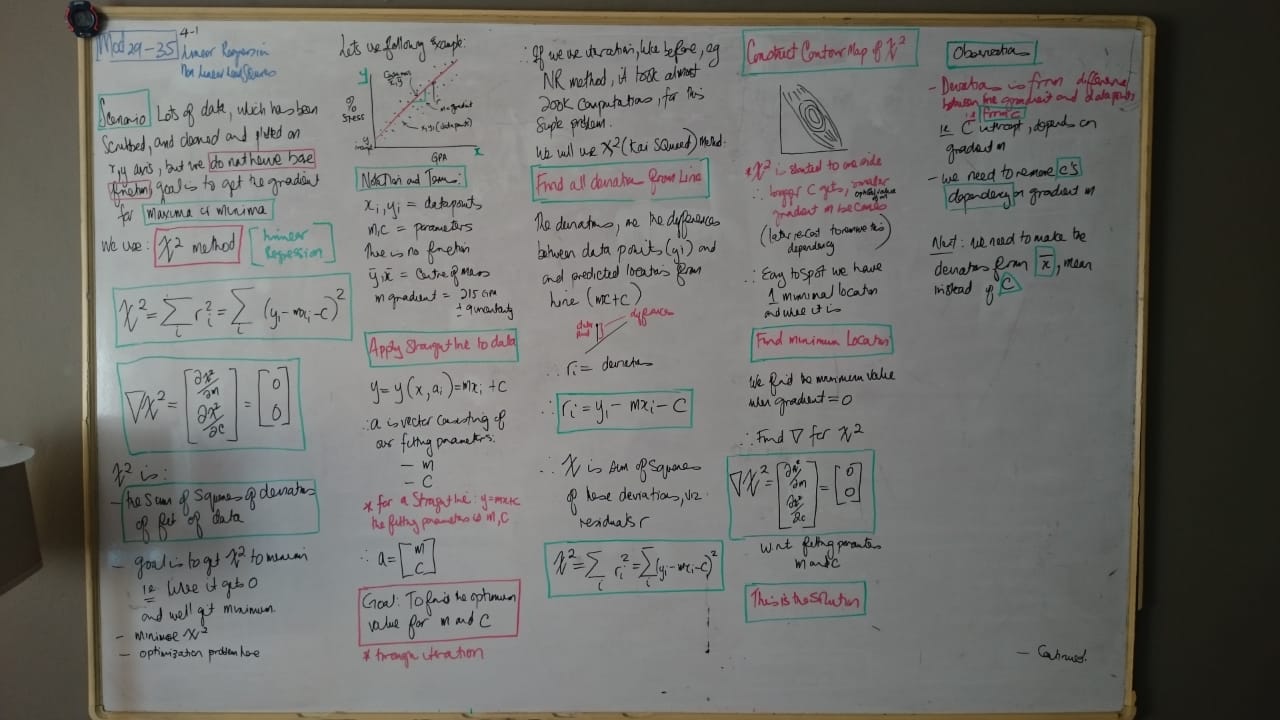 Mod 29-35 4-1
Linear Regression
Non Linear Least Squares
Scenario Lots of data, which has been
scrubbed, and cleaned and plotted on
x,y axis, but we do not have base
function, goal is to get the gradient
for maxima & minima
We use: χ² method [Linear
Regression]
χ² = Σᵢ rᵢ² = Σᵢ (yᵢ - mxᵢ - c)²
∇χ² = [∂χ²/∂m
∂χ²/∂c] = [0
0]
χ² is:
- the sum of squares of deviations
of of data
- goal is to get χ² to minimum
ie where it gets 0
and we'll get minimum
- minimise χ²
- optimization problem here
Lets use following example:
y
%
Stress
m=gradient
xᵢ,yᵢ (data points)
GPA x
Notation and Terms:
xᵢ, yᵢ = data points
m,c = parameters
There is no function
ȳ, x̄ = Centre of Mass
m gradient = 215 GPA
± uncertainty
Apply Straight line to data
y = y(x, aᵢ) = mxᵢ + c
∴ a is vector consisting of
our fitting parameters:
- m
- c
* for a Straight line: y=mx+c
the fitting parameters is m, c
∴ a = [m
c]
Goal: To find the optimum
value for m and c
* through iteration
∴ If we use iteration, like before, eg
NR method, it took almost
200k computations, for this
simple problem.
We will use χ² (Kai Squared) Method.
Find all deviations from Line
The deviations, are the differences
between data points (yᵢ) and
and predicted locations from
line (mx+c)
data
point
differences
∴ rᵢ = deviations
∴ rᵢ = yᵢ - mxᵢ - c
∴ χ is sum of squares
of these deviations, viz.
residuals r
χ² = Σᵢ rᵢ² = Σᵢ (yᵢ - mxᵢ - c)²
Construct Contour Map of χ²
* χ² is slanted to one side
∴ bigger c gets, smaller
optimal value of m
gradient m becomes
(later, recast to remove this
dependency)
∴ Easy to spot we have
1 minimal location
and where it is
Find minimum Location
We find the minimum value
when gradient = 0
∴ Find ∇ for χ²
∇χ² = [∂χ²/∂m
∂χ²/∂c] = [0
0]
wrt fitting parameters
m and c
This is the solution
Observations
- Deviations is from difference
between the gradient and data points
ie from c
ie c intercept, depends on
gradient m
- we need to remove c's
dependency on gradient m
Next: We need to make the
deviations from x̄, mean
instead of c
- Continued.